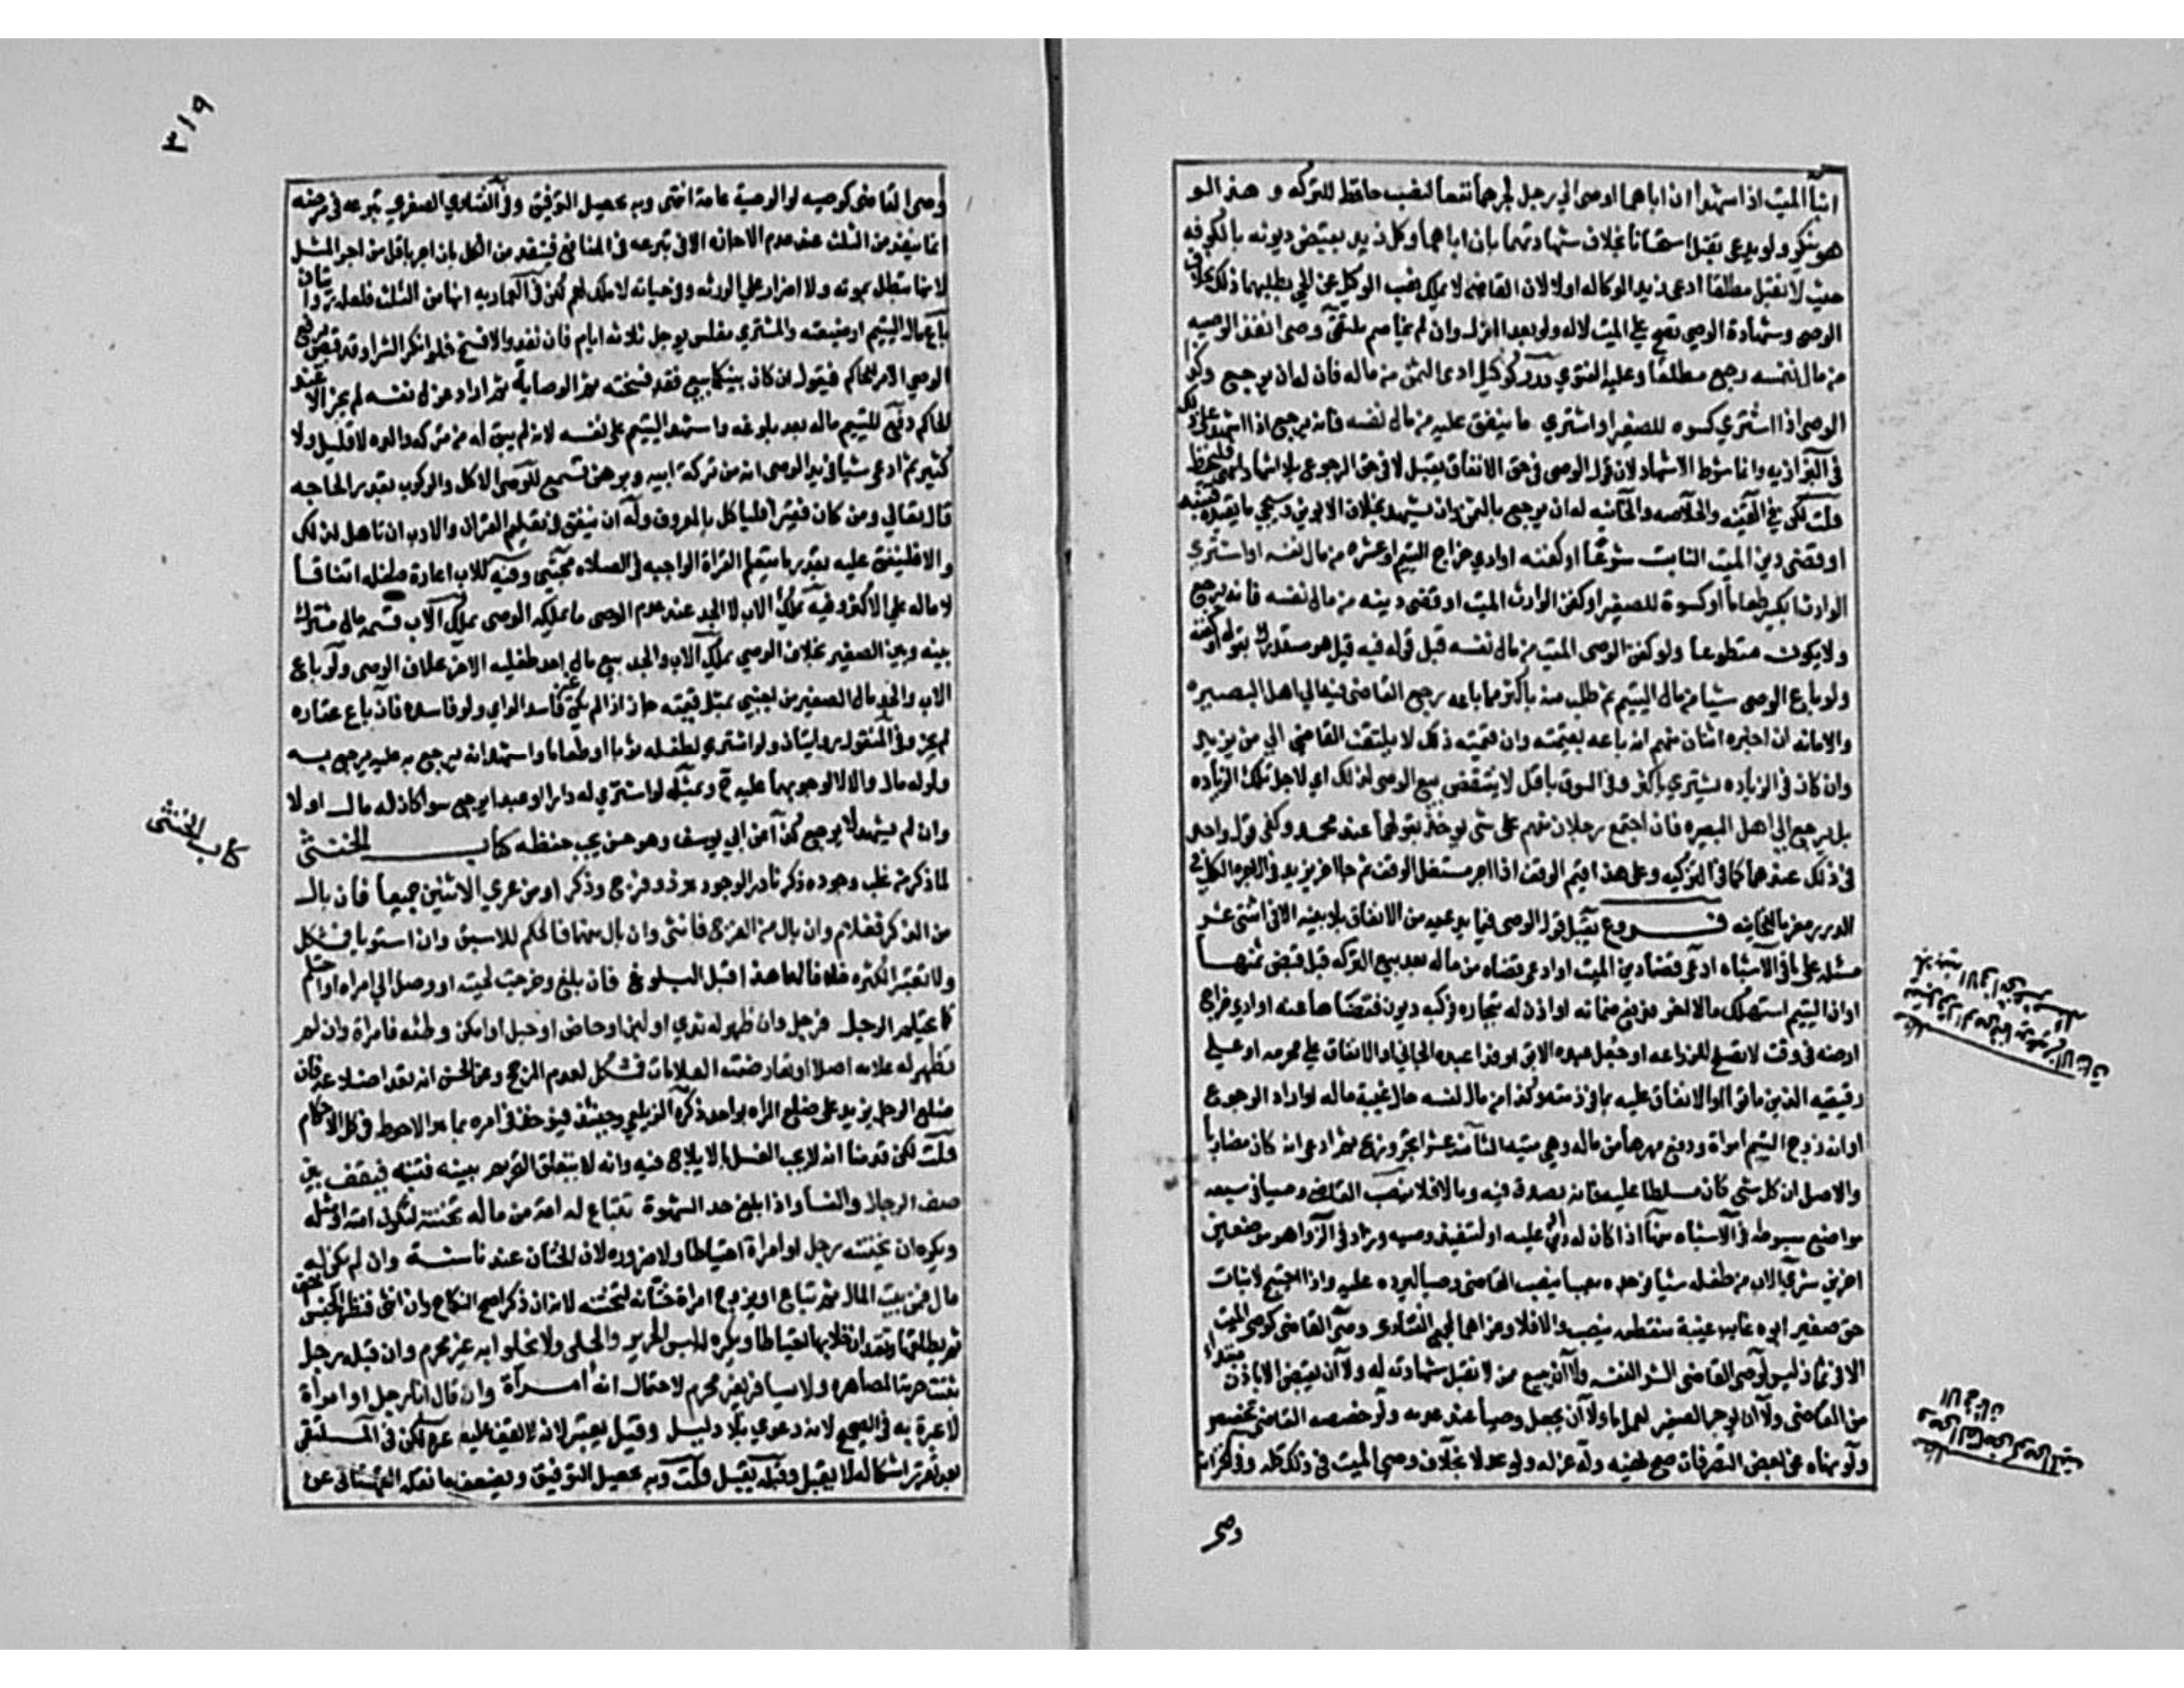 ابنا الميت اذا شهدا ان اباهما اوصي الي رجل لجرهما نفعا لنصب حافظ للتركه و هذا لو
هو منكر ولو يدعي تقبل استحسانا بخلاف شهادتهما بان اباهما وكل زيد بقبض ديونه بالكوفه
حيث لا تقبل مطلقا ادعي زيد الوكاله اولا لان القاضي لا يملك نصب الوكيل عن الحي بطلبهما ذلك بخلاف
الوصي وشهادة الوصي تصح علي الميت لا له ولو بعد العزل وان لم يخاصم ملتقي وصي انفذ الوصيه
من مال نفسه رجع مطلقا وعليه الفتوي درر كوكيل ادي الثمن من ماله فان له ان يرجع وكذا
الوصي اذا اشتري كسوه للصغير او اشتري ما ينفق عليه من مال نفسه فانه يرجع اذا اشهد علي ذلك
في البزازيه وانما شرط الاشهاد لان قول الوصي في حق الانفاق يقبل لا في حق الرجوع بلا اشهاد فليحفظ
قلت لكن في القنيه والخلاصه والخانيه له ان يرجع بالثمن وان لم يشهد بخلاف الابوين وسيجي ما يفيده
او قضي دين الميت الثابت شرعا او كفنه او ادي خراج اليتيم او عشره من مال نفسه او اشتري
الوارث الكبير طعاما او كسوة للصغير او كفن الوارث الميت او قضي دينه من مال نفسه فانه يرجع
ولا يكون متطوعا ولو كفن الوصي الميت من مال نفسه قبل قوله فيه قيل هو مستدرك بقوله او كفنه
ولو باع الوصي شيا من مال اليتيم ثم طلب منه باكثر مما باعه يرجع القاضي فيه الي اهل البصيره
والامانه ان اخبره اثنان منهم انه باعه بقيمته وان قيمته ذلك لا يلتفت القاضي الي من يزيد
وان كان في الزياده يشتري باكثر وفي السوق باقل لا ينتقض بيع الوصي لذلك اي لاجل تلك الزياده
بل يرجع الي اهل البصيره فان اجتمع رجلان منهم علي شي يوخذ بقولهما عند محمد وكفي قول واحد
في ذلك عندهما كما في التزكيه وعلي هذا قيم الوقف اذا اجر مستغل الوقف ثم جا اخر يزيد في الاجره الكل في
الدرر معزيا للخانيه فروع يقبل قول الوصي فيما يدعيه من الانفاق بلا بينه الا في اثني عشر
مسئله علي ما في الاشباه ادعي قضا دين الميت او ادعي قضاه من ماله بعد بيع التركه قبل قبض ثمنها
او ان اليتيم استهلك مالا اخر فدفع ضمانه او اذن له بتجاره فركبه ديون فقضاها عنه او ادي خراج
ارضه في وقت لا تصلح للزراعه او جعل عبده الابق او فدا عبده الجاني او الانفاق علي محرمه او علي
رقيقه الذين ماتوا او الانفاق عليه مما في ذمته وكذا من مال نفسه حال غيبة ماله واراد الرجوع
او انه زوج اليتيم امراة ودفع مهرها من ماله وهي ميته الثاني عشر اتجر وربح ثم ادعي انه كان مضاربا
والاصل ان كل شي كان مسلطا عليه فانه يصدق فيه وما لا فلا ينصب القاضي وصيا في سبعه
مواضع مبسوطه في الاشباه منها اذا كان له دين عليه او لتنفيذ وصيه وزاد في الزواهر موضعين
اخرين شري الاب من طفله شيا فوجده معيبا ينصب القاضي وصيا ليرده عليه واذا احتيج لاثبات
حق صغير ابوه غايب غيبة منقطعه ينصب والا فلا وعزاهما لمجمع الفتاوي وصي القاضي كوصي الميت
الا في ثمان ليس لوصي القاضي الشرا لنفسه ولا ان يبيع ممن لا تقبل شهادته له ولا ان يقبض الا باذن مبتدا
من القاضي ولا ان يوجر الصغير لعمل ما ولا ان يجعل وصيا عند عدمه ولو خصصه القاضي تخصص
ولو نهاه عن بعض التصرفات صح نهيه وله عزله ولو عدلا بخلاف وصي الميت في ذلك كله وفي الخزانه
وصي
وصي القاضي كوصي الميت
الا في ثمان
٣١٩
وصي القاضي كوصيه لو الوصية عامة انتهي وبه يحصل التوفيق وفي الفتاوي الصغري تبرعه في مرضه
انما ينفذ من الثلث عند عدم الاجازه الا في تبرعه في المنافع فينفذ من الكل بان اجر باقل من اجر المثل
لانها تبطل بموته ولا اضرار علي الورثه وفي حياته لا ملك لهم لكن في العماديه انها من الثلث فلعله روايتان
باع مال اليتيم او ضيعته والمشتري مفلس يوجل ثلاثه ايام فان نقد والا فسخ فلو انكر الشرا وقد قبض يرفع
الوصي الامر للحاكم فيقول ان كان بينكما بيع فقد فسخته قبل الوصاية ثم اراد عزل نفسه لم يجز الا عند
الحاكم دفع لليتيم ماله بعد بلوغه واشهد اليتيم علي نفسه لانه لم يبق له من تركه والده لا قليل ولا
كثير ثم ادعي شيا في يد الوصي انه من تركة ابيه وبرهن تسمع للوصي الاكل والركوب بقدر الحاجه
قال تعالي ومن كان فقيرا فلياكل بالمعروف وله ان ينفق في تعليم القران والادب ان تاهل لذلك
والا فلينفق عليه بقدر ما يتعلم القراة الواجبه في الصلاه مجتبي وفيه للاب اعارة طفله اتفاقا
لا ماله علي الاكثر وفيه يملك الاب لا الجد عند عدم الوصي ما يملكه الوصي يملك الاب قسمه مال مشترك
بينه وبين الصغير بخلاف الوصي يملك الاب والجد بيع مال احد طفليه الاخر بخلاف الوصي ولو باع
الاب والجد مال الصغير من اجنبي بمثل قيمته جاز اذا لم يكن فاسد الراي ولو فاسده فان باع عقاره
لم يجز وفي المنقول روايتان ولو اشتري لطفله ثوبا او طعاما واشهد انه يرجع به عليه يرجع به
ولو له مال والا لا لوجوبهما عليه ح وبمثله لو اشتري له دارا او عبدا يرجع سوا كان له مال او لا
وان لم يشهد لا يرجع كذا عن ابي يوسف وهو حسن يجب حفظه كتاب الخنثي
كتاب الخنثي
لما ذكر من غلب وجوده ذكر نادر الوجود هو ذو فرج وذكر او من عري الاثنين جميعا فان بال
من الذكر فغلام وان بال من الفرج فانثي وان بال منهما فالحكم للاسبق وان استويا فمشكل
ولا تعتبر الكثره خلافا لهما هذا قبل البلوغ فان بلغ وخرجت لحيته او وصل الي امراه او احتلم
كما يحتلم الرجل فرجل وان ظهر له ثدي او لبن او حاض او حبل او امكن وطئه فامراة وان لم
تظهر له علامه اصلا او تعارضت العلامات فمشكل لعدم المرجح وعن الحسن انه تعد اضلاعه فان
ضلع الرجل يزيد علي ضلع المراه بواحد ذكره الزيلعي وحينئذ فيوخذ في امره بما هو الاحوط في كل الاحكام
قلت لكن قدمنا انه لا يجب الغسل بالايلاج فيه وانه لا يتعلق التحريم بلبنه فتنبه فيقف بين
صف الرجال والنسا واذا بلغ حد الشهوة تبتاع له امة من ماله تختنه لتكون امته او مثله
ويكره ان يختنه رجل او امراة احتياطا ولا ضروره لان الختان عندنا سنة وان لم يكن له
مال فمن بيت المال ثم تباع او يزوج امراة ختانه لتختنه لانه ان ذكرا صح النكاح وان انثي فنظر الجنس اخف
ثم يطلقها وتعتد ان خلا بها احتياطا ويكره له لبس الحرير والحلي ولا يخلو به غير محرم وان قبله رجل
تثبت حرمة المصاهره ولا يسافر بغير محرم لاحتمال انه امراة وان قال انا رجل او امراة
لا عبرة به في الصحيح لانه دعوي بلا دليل وقيل يعتبر لانه لا يقف عليه غيره لكن في الملتقي
بعد تقرر اشكاله لا يقبل وقبله يقبل قلت وبه يحصل التوفيق ويضعف ما نقله القهستاني عن